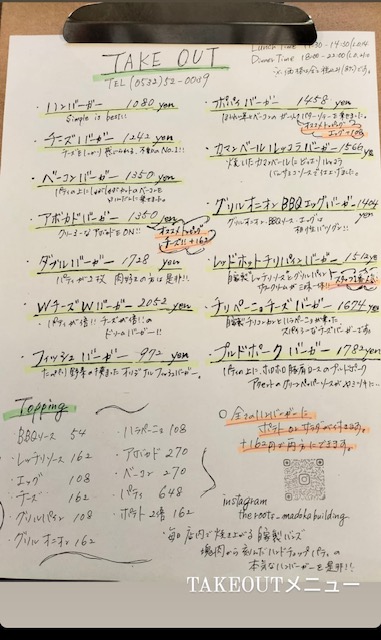 TAKE OUT
TEL (0532) 52-0009
Lunch Time 11:30 - 14:30 (L.O 14
Dinner Time 18:00 - 22:00 (L.O
・ハンバーガー 1080 yen
Simple is best!!
・チーズバーガー 1242 yen
・ベーコンバーガー 1350 yen
・アボカドバーガー 1350 yen
クリーミーなアボカドをON!!
オススメトッピング
チーズ!! +162
・ダブルバーガー 1728 yen
パティが2枚 肉野郎の方は是非!!
・WチーズWバーガー 2052 yen
パティが倍!! チーズが倍!!の
ドリームバーガー!!
・フィッシュバーガー 972 yen
・ポパイバーガー 1458 yen
オススメトッピング
エッグ +108
・カマンベールハニーバーガー 1566 yen
・グリルオニオンBBQエッグバーガー 1404 yen
グリルオニオン、BBQソース、エッグは
相性バツグン!!
・レッドホットチリパインバーガー 1512 yen
・チリペーニョチーズバーガー 1674 yen
・プルドポークバーガー 1782 yen
Topping
BBQソース 54
・レッドチリソース 162
・エッグ 108
・チーズ 162
・グリルパイン 108
・グリルオニオン 162
・ハラペーニョ 108
・アボカド 270
・ベーコン 270
・パティ 648
・ポテト2倍 162
○全てのハンバーガーに
ポテト or サラダが付きます。
+162円で両方にできます。
instagram
the.roots_madokabuilding
・毎日店内で焼き上げる自家製バンズ
塊肉から刻んだハンドチョップパティの
本気なハンバーガーを是非!!
TAKEOUTメニュー